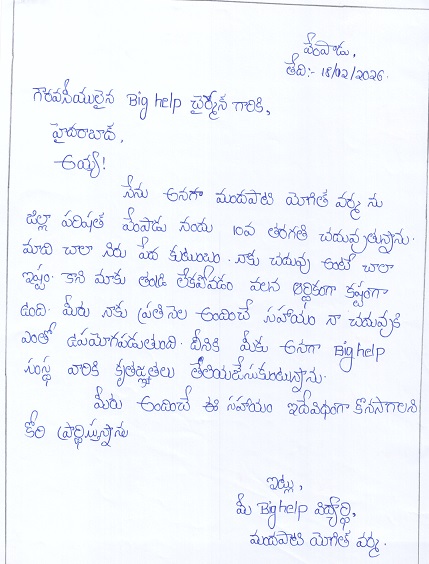 వేంపాడు,
తేది:- 18/02/2026.
గౌరవనీయులైన Big help చైర్మేన్ గారికి,
హైదరాబాద్,
అయ్య!
నేను అనగా మందపాటి యోగిత వర్మ ను
జిల్లా పరిషత్ వేంపాడు నందు 10వ తరగతి చదువుతున్నాను.
మాది చాలా నిరు పేద కుటుంబం. నాకు చదువు అంటే చాలా
ఇష్టం. కాని మాకు తండ్రి లేకపోవడం వలన ఆర్థికంగా కష్టంగా
ఉంది. మీరు నాకు ప్రతి నెల అందించే సహాయం నా చదువుకి
ఎంతో ఉపయోగపడుతుంది. దీనికి మీకు అనగా Big help
సంస్థ వారికి కృతజ్ఞతలు తెలియజేసుకుంటున్నాను.
మీరు అందించే ఈ సహాయం ఇదేవిధంగా కొనసాగాలని
కోరి ప్రార్థిస్తున్నాను
ఇట్లు,
మీ Big help విద్యార్థి,
మందపాటి యోగిత వర్మ.